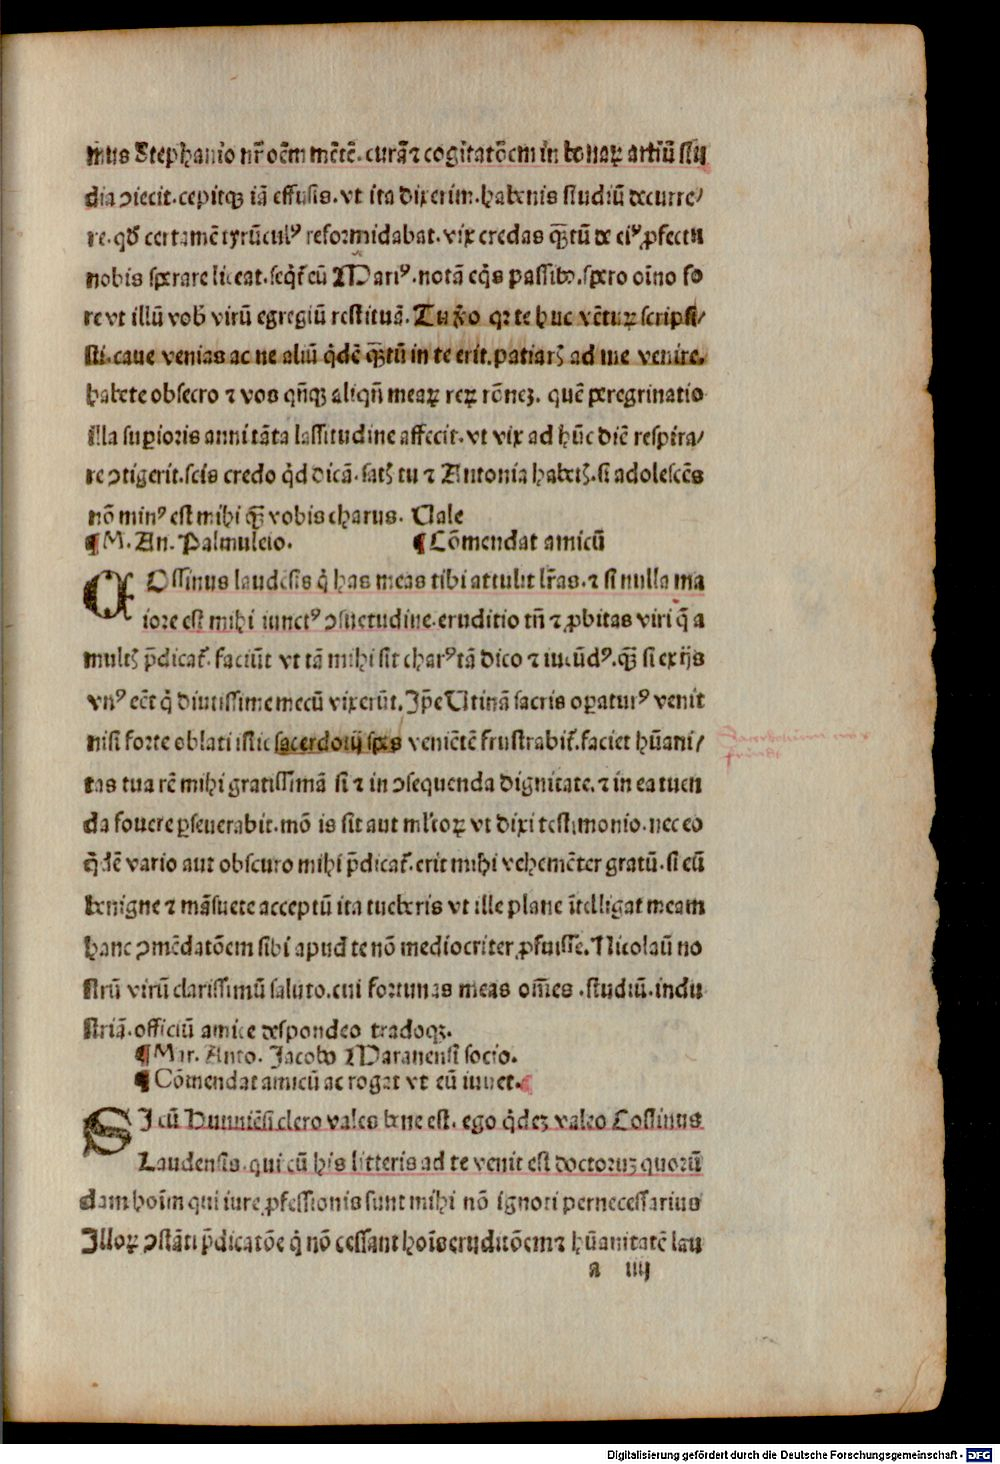 mus Stephanio nr̄ oēm mētē. curā ⁊ cogitatōem in bonaꝝ artiū stu
dia ↄiecit. cepitqꝫ iā effusis. vt ita dixerim. habenis studiū decurre/
re. qď certamē tyrūculꝰ reformidabat. vix credas qꝫ̄tū de eiꝰ ꝓfectu
nobis sperare liceat. seqt̄ cū Mariꝰ. notā eqs passibꝰ. spero oīno fo
re vt illū vob̄ virū egregiū restituā. Tu v̄o qꝛ te huc vētuꝝ scripsi/
sti. caue venias ac ne aliū qͥdē qꝫ̄tū in te erit. patiarꝭ ad me venire.
habete obsecro ⁊ vos qn̄qꝫ aliqn̄ meaꝝ reꝝ rōneꝫ. quē peregrinatio
illa suꝑioris anni tāta lassitudine affecit. vt vix ad hūc diē respira/
re ↄtigerit. scis credo qͥd dicā. satꝭ tu ⁊ Antonia habetꝭ. si adolescēs
nō minꝰ est mihi qꝫ̄ vobis charus. Uale
¶ M. An. Palmuleio. ¶ Cōmendat amicū
COssinus laudēsis qͥ has meas tibi attulit lr̄as. ⁊ si nulla ma
iore est mihi iunctꝰ ↄsuetudine. eruditio tn̄ ⁊ ꝓbitas viri q̄ a
multꝭ p̄dicat̄. faciūt vt tā mihi sit charꝰ tā dico ⁊ iucūdꝰ. qꝫ̄ si ex ijs
vnꝰ eēt qͥ diutissime mecū vixerūt. Ip̄e Utinā sacris oꝑaturꝰ venit
nisi forte oblati istic sacerdotij spes veniētē frustrabit̄. faciet hūani/
tas tua rē mihi gratissimā si ⁊ in ↄsequenda dignitate. ⁊ in ea tuen
da fouere ꝑseuerabit. mō is sit aut ml̄toꝝ vt dixi testimonio. nec eo
qͥdē vario aut obscuro mihi p̄dicat̄. erit mihi vehemēter gratū. si eū
benigne ⁊ māsuete acceptū ita tueberis vt ille plane ītelligat meam
hanc ↄmēdatōem sibi apud te nō mediocriter ꝓfuisse. Nicolaū no
strū virū clarissimū saluto. cui fortunas meas om̄es. studiū. indu
striā. officiū amice despondeo tradoqꝫ.
¶ Mar. Anto. Jacobo Maranensi socio.
¶ Cōmendat amicū ac rogat vt eū iuuet.
SI cū Dunniēsi clero vales bene est. ego qͥdeꝫ valeo Cossinus
Laudensis. qui cū his litteris ad te venit est doctoruꝫ quorū
dam hoīm qui iure ꝓfessionis sunt mihi nō ignoti pernecessarius
Illoꝝ ↄstāti p̄dicatōe qͥ nō cessant hoīs eruditōem ⁊ hūanitatē lau
a iiij
Digitalisierung gefördert durch die Deutsche Forschungsgemeinschaft - DFG